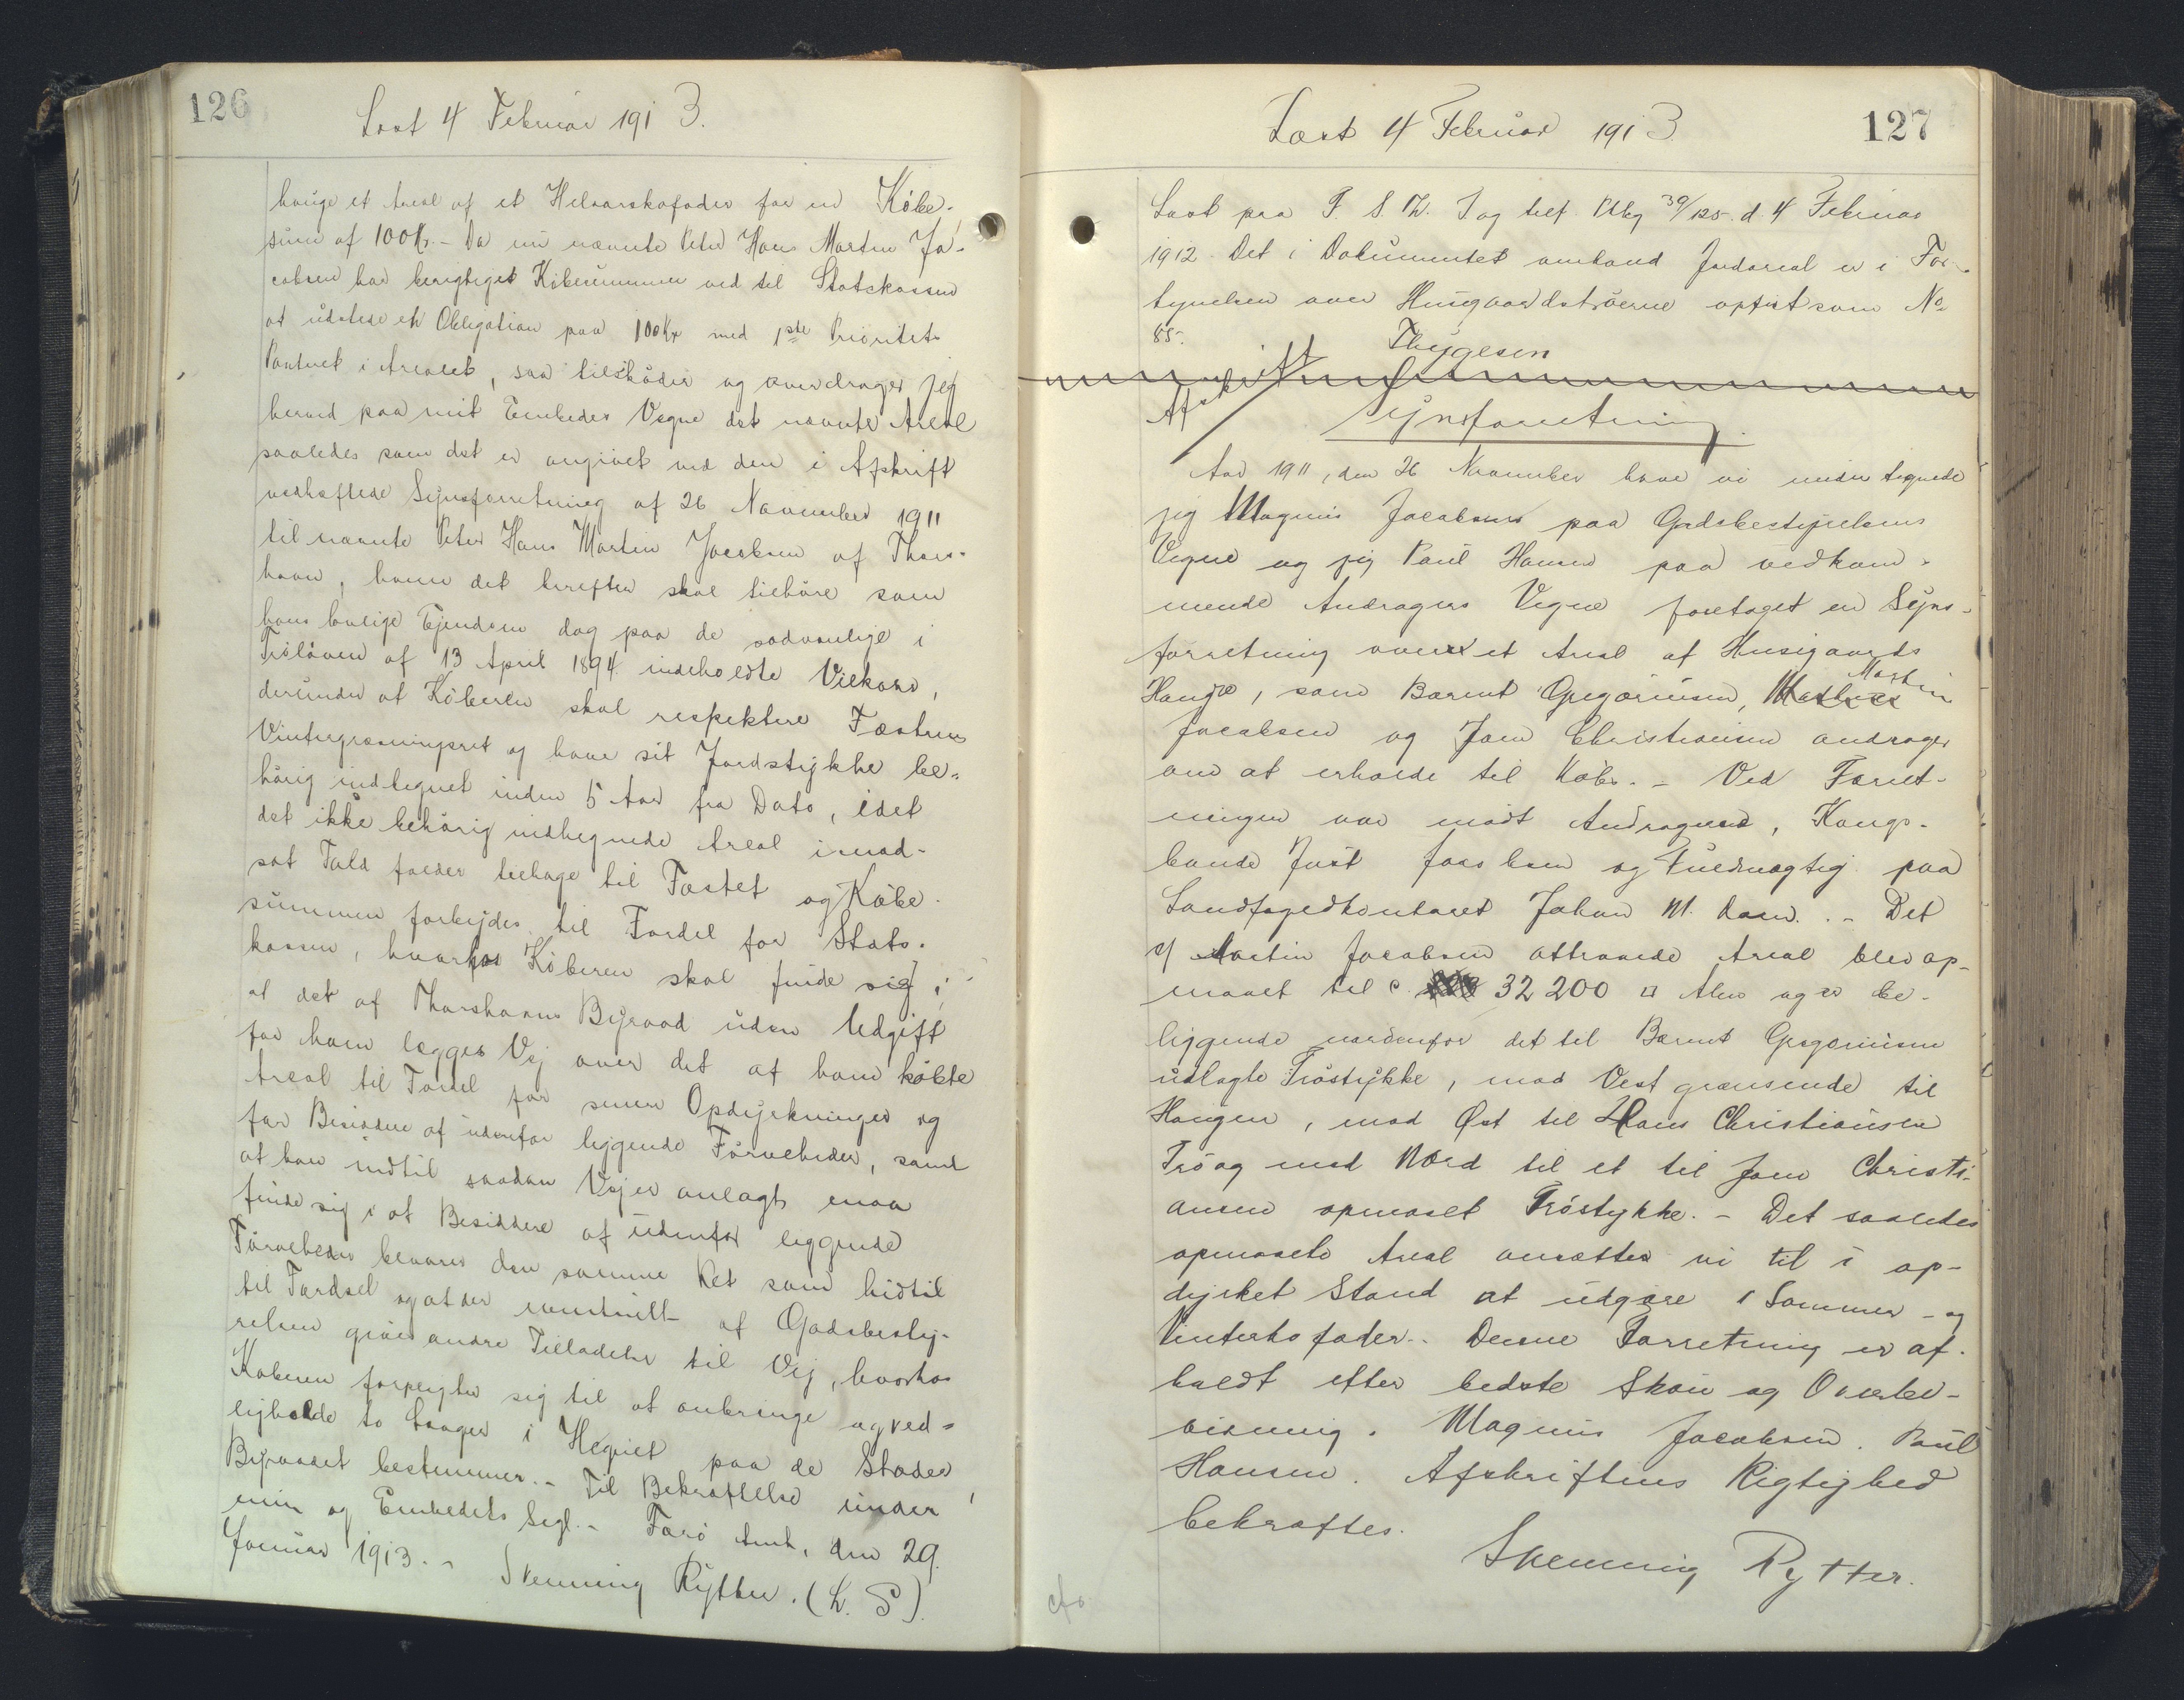 126
Læst 4 Februar 1913.
hauge et Areal af et Helaarskofoder for en Købe-
sum af 100 Kr. - Da nu nævnte Peter Hans Martin Ja-
cobsen har berigtiget Købesummen ved til Statskassen
at udstede en Obligation paa 100 Kr med 1ste Prioritets
Panteret i Arealet, saa tilskøder og overdrager jeg
herved paa mit Embedes Vegne det nævnte Areal
saaledes som det er angivet ved den i Afskrift
vedhæftede Synsforretning af 26 November 1911
til nævnte Peter Hans Martin Jacobsen af Thors-
havn, hvem det herefter skal tilhøre som
hans lovlige Ejendom dog paa de sædvanlige i
Trøloven af 13 April 1894 indeholdte Vilkaar,
derunder at Køberen skal respektere Fæsterens
Vintergræsningsret og have sit Jordstykke be-
hørig indhegnet inden 5 Aar fra Dato, idet
det ikke behørig indhegnede Areal i mod-
sat Fald falder tilbage til Fæstet og Købe-
summen forbrydes til Fordel for Stats-
kassen, hvorhos Køberen skal finde sig i,
at det af Thorshavns Byraad uden Udgift
for ham lægges Vej over det af ham købte
Areal til Fordel for senere Opdyrkninger og
for Besiddere af udenfor liggende Tørvebeder, samt
at han indtil saadan Vej er anlagt maa
finde sig i at Besiddere af udenfor liggende
Tørvebeder bevarer den samme Ret som hidtil
til Færdsel og at der eventuelt af Godsbesty-
relsen gives andre Tilladelse til Vej, hvorhos
Køberen forpligter sig til at anbringe og ved-
ligholde to Laager i Hegnet paa de Steder,
Byraadet bestemmer. - Til Bekræftelse under
min og Embedets Segl. - Færø Amt, den 29.
Januar 1913. - Svenning Rytter. (L. S.)
127
Læst 4 Februar 1913.
Læst paa F. S. Th. J og telf. Pbg 39/125. d. 4 Februar
1912. Det i Dokumentet omhand Jordareal er i For-
tegnelsen over Husgaardstrøerne opført som No
85.
Thygesen
Afskrift
Synsforretning.
Aar 1911, den 26 November have vi undertegnede
jeg Magnus Jacobsen paa Godsbestyrelsens
Vegne og jeg Poul Hansen paa vedkom-
mende Andragers Vegne foretaget en Syns-
forretning over et Areal af Husigaards
Hauge, som Barent Gregoriusen, Martin
Jacobsen og Joen Christiansen andrager
om at erholde til Købs. - Ved Forret-
ningen var mødt Andragerne, Kongs-
bonde Just Jacobsen og Fuldmægtig paa
Landfogedkontoret Johan M. Dam. - Det
af Martin Jacobsen attraaede Areal blev op-
maalt til c. 32200 □ Alen og er be-
liggende nordenfor det til Barent Gregoriusen
udlagte Trøstykke, mod Vest grænsende til
Haugen, mod Øst til Hans Christiansen
Trø og mod Nord til et til Joen Christi-
ansen opmaalt Trøstykke. - Det saaledes
opmaalte Areal ansætter vi til i op-
dyrket Stand at udgøre 1 Sommer - og
Vinterkofoder. - Denne Forretning er af-
holdt efter bedste Skøn og Overbe-
visning. Magnus Jacobsen. Poul
Hansen. Afskriftens Rigtighed
bekræftes.
Svenning Rytter.
cfr